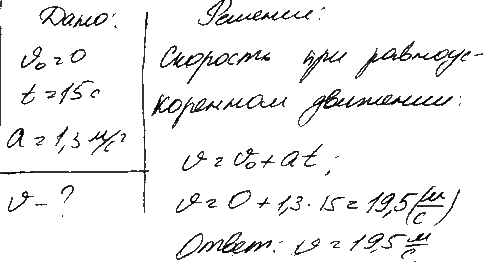 Дано:
υ₀ = 0
t = 15 c
a = 1,3 м/с²
υ - ?
Решение:
Скорость при равноус-
коренном движении:
υ = υ₀ + at;
υ = 0 + 1,3 · 15 = 19,5 (м/с)
Ответ: υ = 19,5 м/с